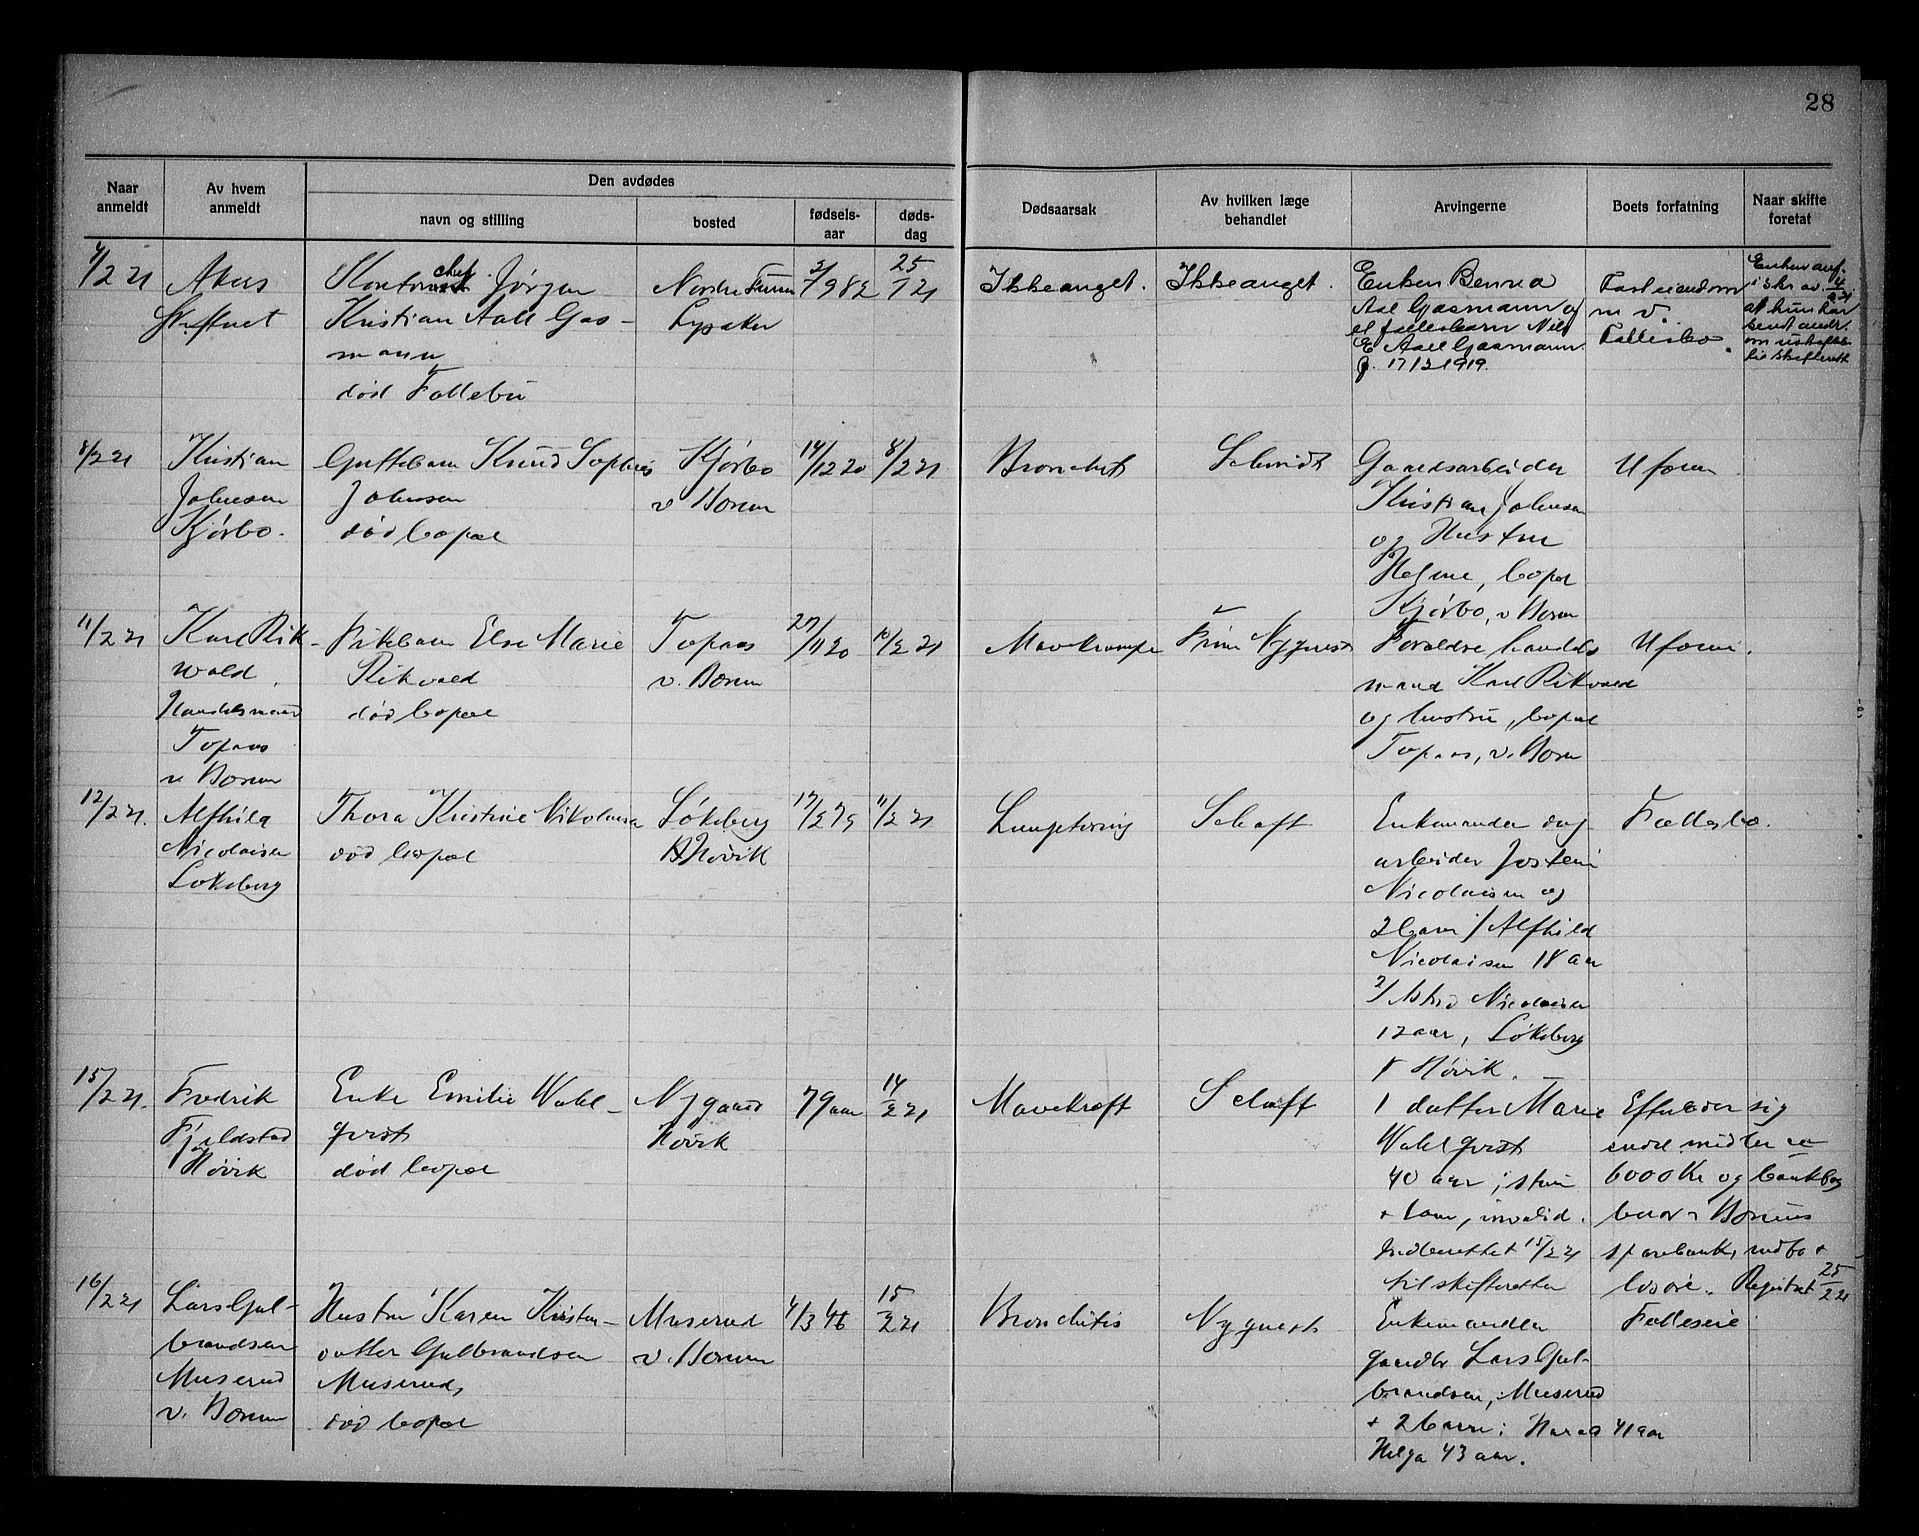 28
Naar anmeldt
Av hvem anmeldt
Den avdødes
navn og stilling
bosted
fødsels-aar
døds-dag
Dødsaarsak
Av hvilken læge behandlet
Arvingerne
Boets forfatning
Naar skifte foretat
4/2 21
Akers
Skifteret
Kontorchef Jørgen
Kristian Aall Gas-
mann
død Follebu
Nordre Furu
Lysaker
9 82
25/1 21
Ikke anget.
Ikke anget.
Enken Benna
Aall Gasmann og
et fællesbarn Nils
E. Aall Gasmann
f. 17/2 1919.
Fast eiendom
m v.
Fællesbo.
Enken anf.
i skr av 4/2 21
at hun har
sendt andr.
om uskiftebo
til skifterett
8/2 21
Kristian
Johnsen
Kjørbo.
Guttebarn Knud Sophus
Johnsen
død bopæl
Kjørbo
v Bærum
14/12 20
8/2 21
Bronchit
Schmidt
Gaardsarbeider
Kristian Johnsen
og Hustru
bopæl
Kjørbo, v Bærum
Uform
11/2 21
Karl Rik-
wald,
Handelsmand
Topaas
v Bærum
Pikebarn Else Marie
Rikvald
død bopæl
Topaas
v. Bærum
27/11 20
10/2 21
Mavekrampe
Frim Nyquist
Forældre handels
mand Karl Rikvald
og hustru, bopæl
Topaas, v. Bærum
Uform.
12/2 21.
Alfhild
Nicolaisen
Løkeberg
Thora Kristine Nikolaisen
død bopæl
Løkeberg
Høvik
17/2 79
11/2 21
Lungetæring
Schaft
Enkemanden dag
arbeider Jostein
Nicolaisen og
2 barn 1/ Alfhild
Nicolaisen 18 aar
2/ Astrid Nicolaisen
12 aar, Løkeberg
Høvik.
Fællesbo.
15/2 21.
Fredrik
Fjeldstad
Høvik
Enke Emilie Wahl-
qvist
død bopæl
Nygaard
Høvik
79 aar
14/2 21
Mavekræft
Schaft
1 datter Marie
Wahlqvist
40 aar,
+ lam, invalid.
Indberettet 15/2 21
til skifteretten
Efterlader sig
endel midler ca
6000 Kr og bankbog
Bærums
sparebank, indbo +
løsøre. Registrert 25/2 21
16/2 21
Lars Gul-
brandsen
Muserud
v. Bærum
Hustru Karen Kristen-
datter Gulbrandsen
Muserud,
død bopæl
Muserud
v. Bærum
4/3 46
15/2 21
Bronchitis
Nyquist
Enkemanden
gaardbr Lars Gul-
brandsen, Muserud
+ 2 barn: Harald 41 aar
Helga 43 aar.
Fælleseie